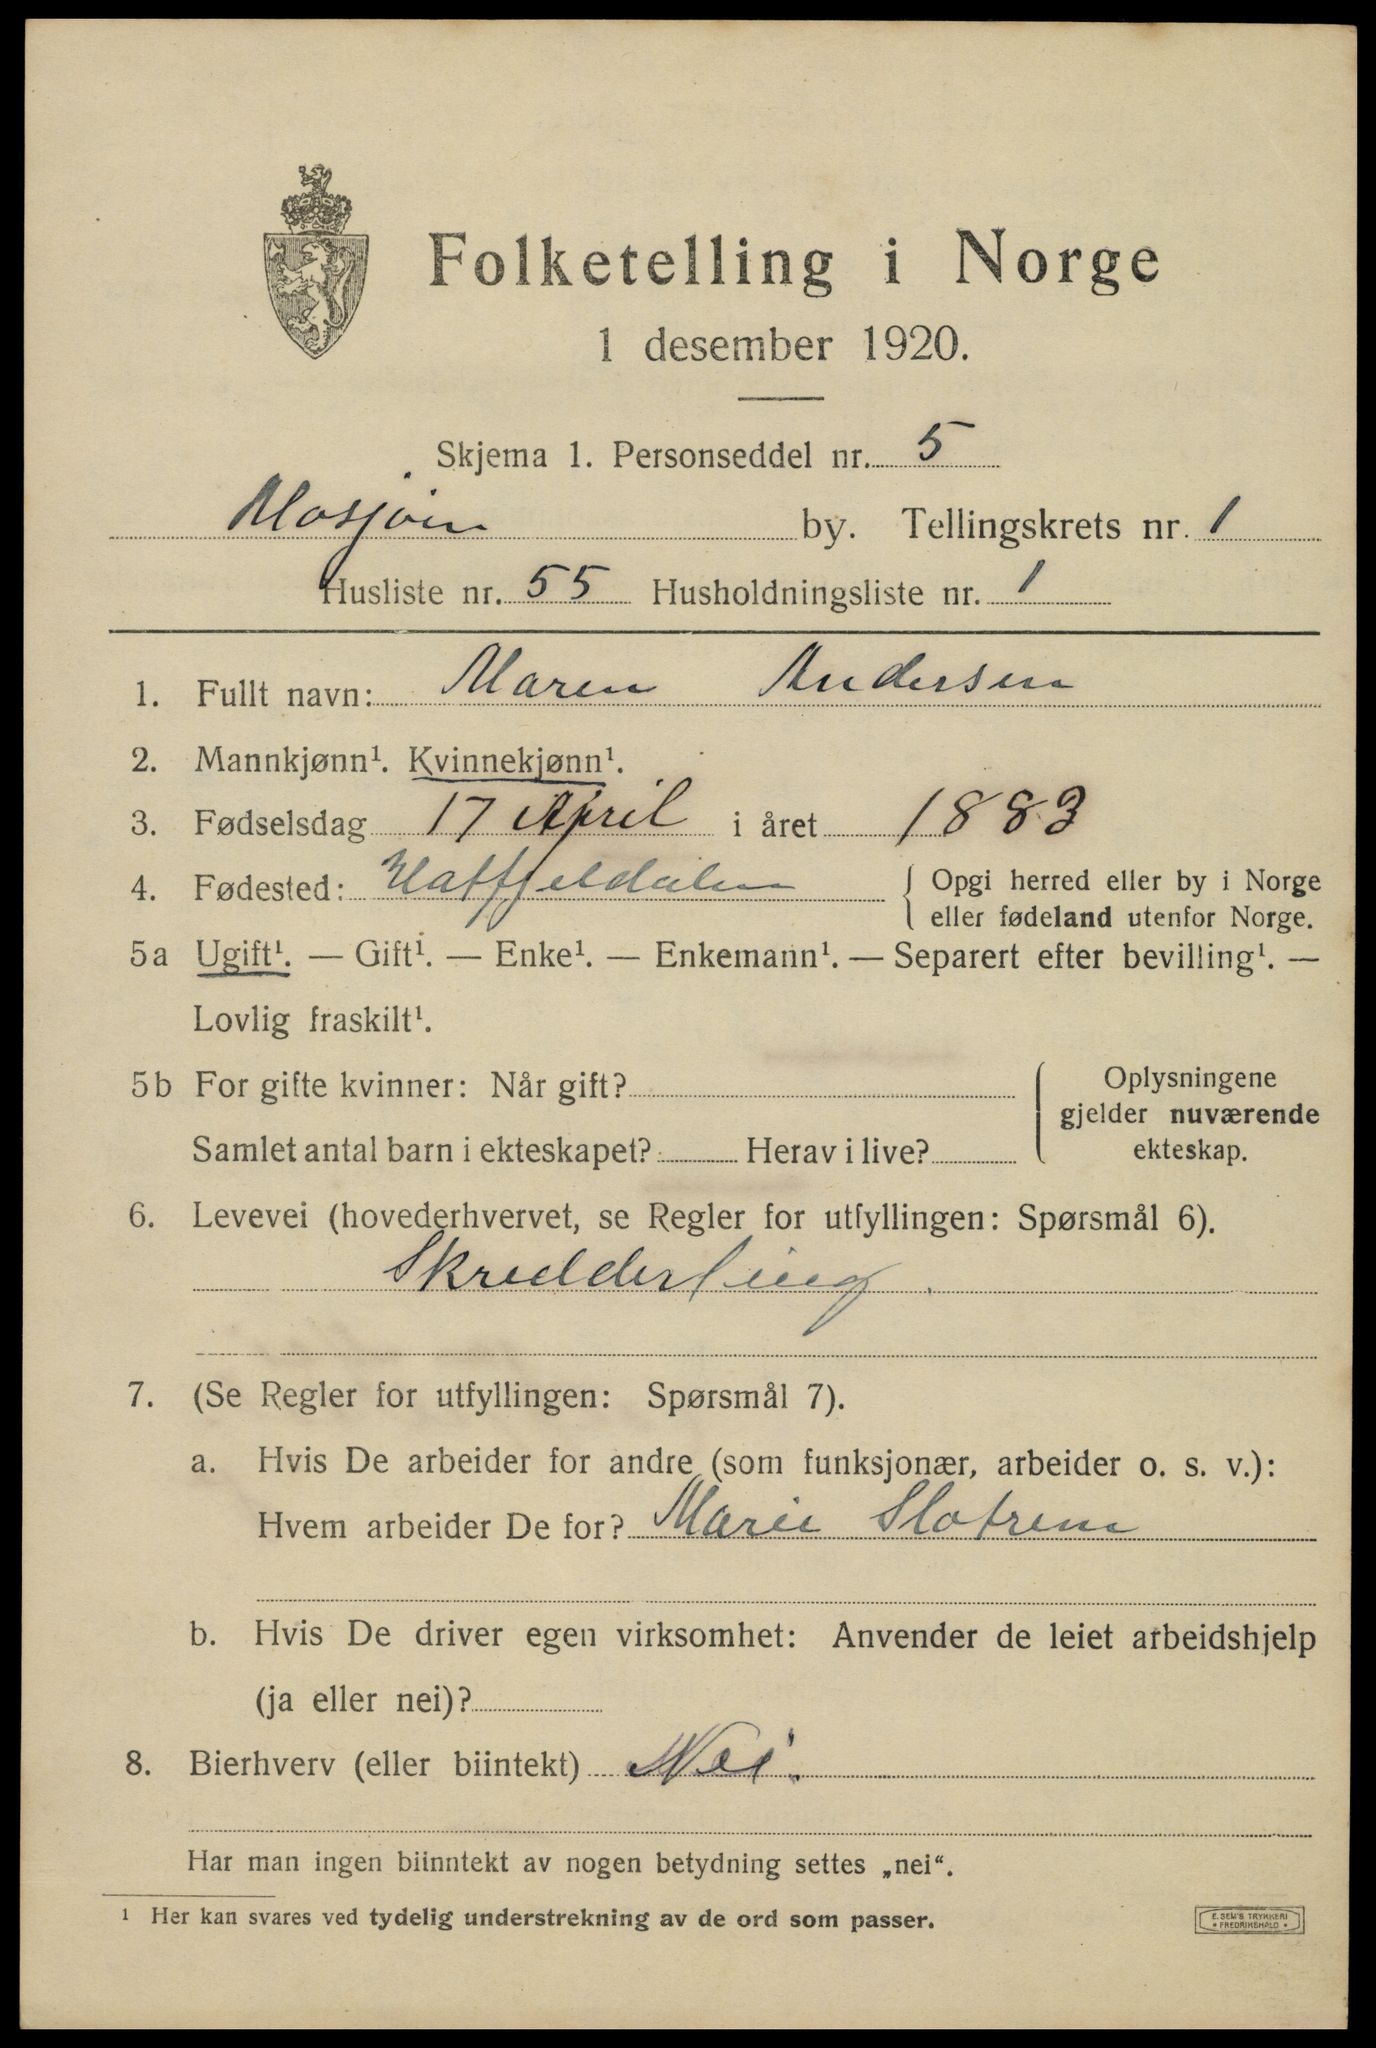 Folketelling i Norge
1 desember 1920.
Skjema 1. Personseddel nr. 5
Mosjøen by. Tellingskrets nr. 1
Husliste nr. 55 Husholdningsliste nr. 1
1. Fullt navn: Maren Andersen
2. Mannkjønn¹. Kvinnekjønn¹.
3. Fødselsdag 17 April i året 1883
4. Fødested: Hatfjeldalen { Opgi herred eller by i Norge
eller fødeland utenfor Norge.
5a Ugift¹. — Gift¹. — Enke¹. — Enkemann¹. — Separert efter bevilling¹. —
Lovlig fraskilt¹.
5b For gifte kvinner: Når gift?
Samlet antal barn i ekteskapet? Herav i live?
Oplysningene
gjelder nuværende
ekteskap.
6. Levevei (hovederhvervet, se Regler for utfyllingen: Spørsmål 6).
7. (Se Regler for utfyllingen: Spørsmål 7).
a. Hvis De arbeider for andre (som funksjonær, arbeider o. s. v.):
Hvem arbeider De for? Marie
b. Hvis De driver egen virksomhet: Anvender de leiet arbeidshjelp
(ja eller nei)?
8. Bierhverv (eller biintekt) Nei.
Har man ingen biinntekt av nogen betydning settes „nei“.
¹ Her kan svares ved tydelig understrekning av de ord som passer.
E. SEM'S TRYKKERI
• FREDRIKSHALD •